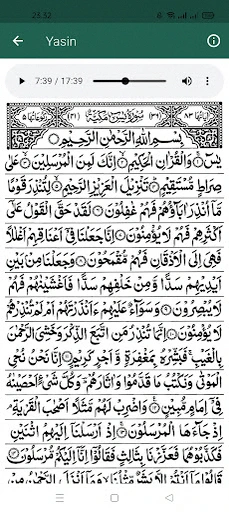 23.52
Yasin
7:39 / 17:39
اٰيَاتُهَا ٨٣ (٣٦) سُوْرَةُ يٰسٓ مَكِّيَّةٌ (٤١) رُكُوْعَاتُهَا ٥
بِسْمِ اللّٰهِ الرَّحْمٰنِ الرَّحِيْمِ
يٰسٓ ۚ وَالْقُرْاٰنِ الْحَكِيْمِ ۙ اِنَّكَ لَمِنَ الْمُرْسَلِيْنَ ۙ عَلٰى
صِرَاطٍ مُّسْتَقِيْمٍ ؕ تَنْزِيْلَ الْعَزِيْزِ الرَّحِيْمِ ۙ لِتُنْذِرَ قَوْمًا
مَّاۤ اُنْذِرَ اٰبَآؤُهُمْ فَهُمْ غٰفِلُوْنَ لَقَدْ حَقَّ الْقَوْلُ عَلٰۤى
اَكْثَرِهِمْ فَهُمْ لَا يُؤْمِنُوْنَ اِنَّا جَعَلْنَا فِيْۤ اَعْنَاقِهِمْ اَغْلٰلًا
فَهِيَ اِلَى الْاَذْقَانِ فَهُمْ مُّقْمَحُوْنَ وَجَعَلْنَا مِنْۢ بَيْنِ
اَيْدِيْهِمْ سَدًّا وَّمِنْ خَلْفِهِمْ سَدًّا فَاَغْشَيْنٰهُمْ فَهُمْ
لَا يُبْصِرُوْنَ وَسَوَآءٌ عَلَيْهِمْ ءَاَنْذَرْتَهُمْ اَمْ لَمْ تُنْذِرْهُمْ
لَا يُؤْمِنُوْنَ اِنَّمَا تُنْذِرُ مَنِ اتَّبَعَ الذِّكْرَ وَخَشِيَ الرَّحْمٰنَ
بِالْغَيْبِ ۚ فَبَشِّرْهُ بِمَغْفِرَةٍ وَّاَجْرٍ كَرِيْمٍ اِنَّا نَحْنُ نُحْيِ
الْمَوْتٰى وَنَكْتُبُ مَا قَدَّمُوْا وَاٰثَارَهُمْ ؕ وَكُلَّ شَيْءٍ اَحْصَيْنٰهُ
فِيْۤ اِمَامٍ مُّبِيْنٍ وَاضْرِبْ لَهُمْ مَّثَلًا اَصْحٰبَ الْقَرْيَةِ ۘ
اِذْ جَآءَهَا الْمُرْسَلُوْنَ ۚ اِذْ اَرْسَلْنَاۤ اِلَيْهِمُ اثْنَيْنِ
فَكَذَّبُوْهُمَا فَعَزَّزْنَا بِثَالِثٍ فَقَالُوْۤا اِنَّاۤ اِلَيْكُمْ مُّرْسَلُوْنَ
قَالُوْا مَاۤ اَنْتُمْ اِلَّا بَشَرٌ مِّثْلُنَا ۙ وَمَاۤ اَنْزَلَ الرَّحْمٰنُ مِنْ